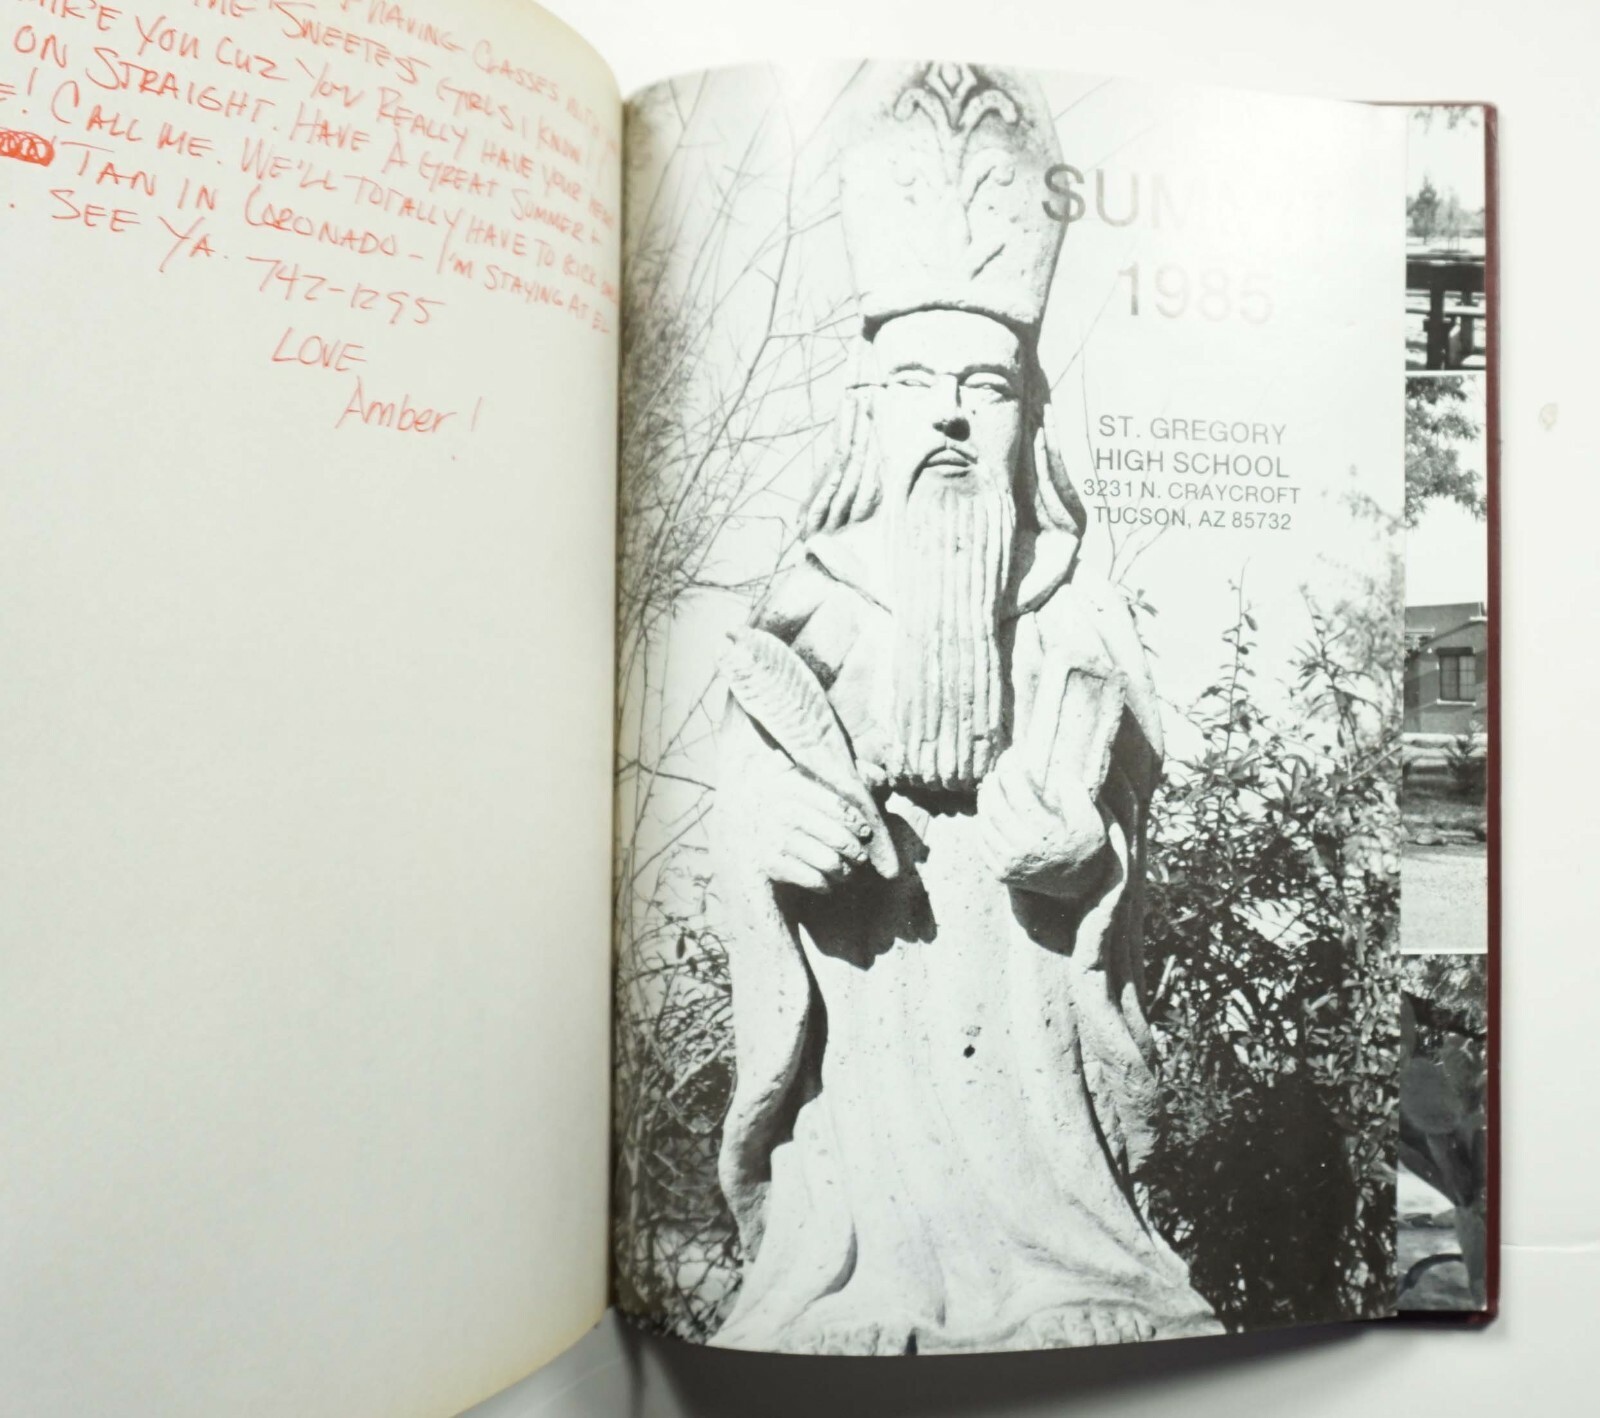 HAVING CLASSES WITH
THE SWEETEST GIRLS I KNOW!
YOU CUZ YOU REALLY HAVE YOUR HEAD
ON STRAIGHT. HAVE A GREAT SUMMER +
! CALL ME. WE'LL TOTALLY HAVE TO KICK
TAN IN CORONADO - I'M STAYING AT EL
. SEE YA. 742-1295
LOVE
Amber!
1985
ST. GREGORY
HIGH SCHOOL
3231 N. CRAYCROFT
TUCSON, AZ 85732